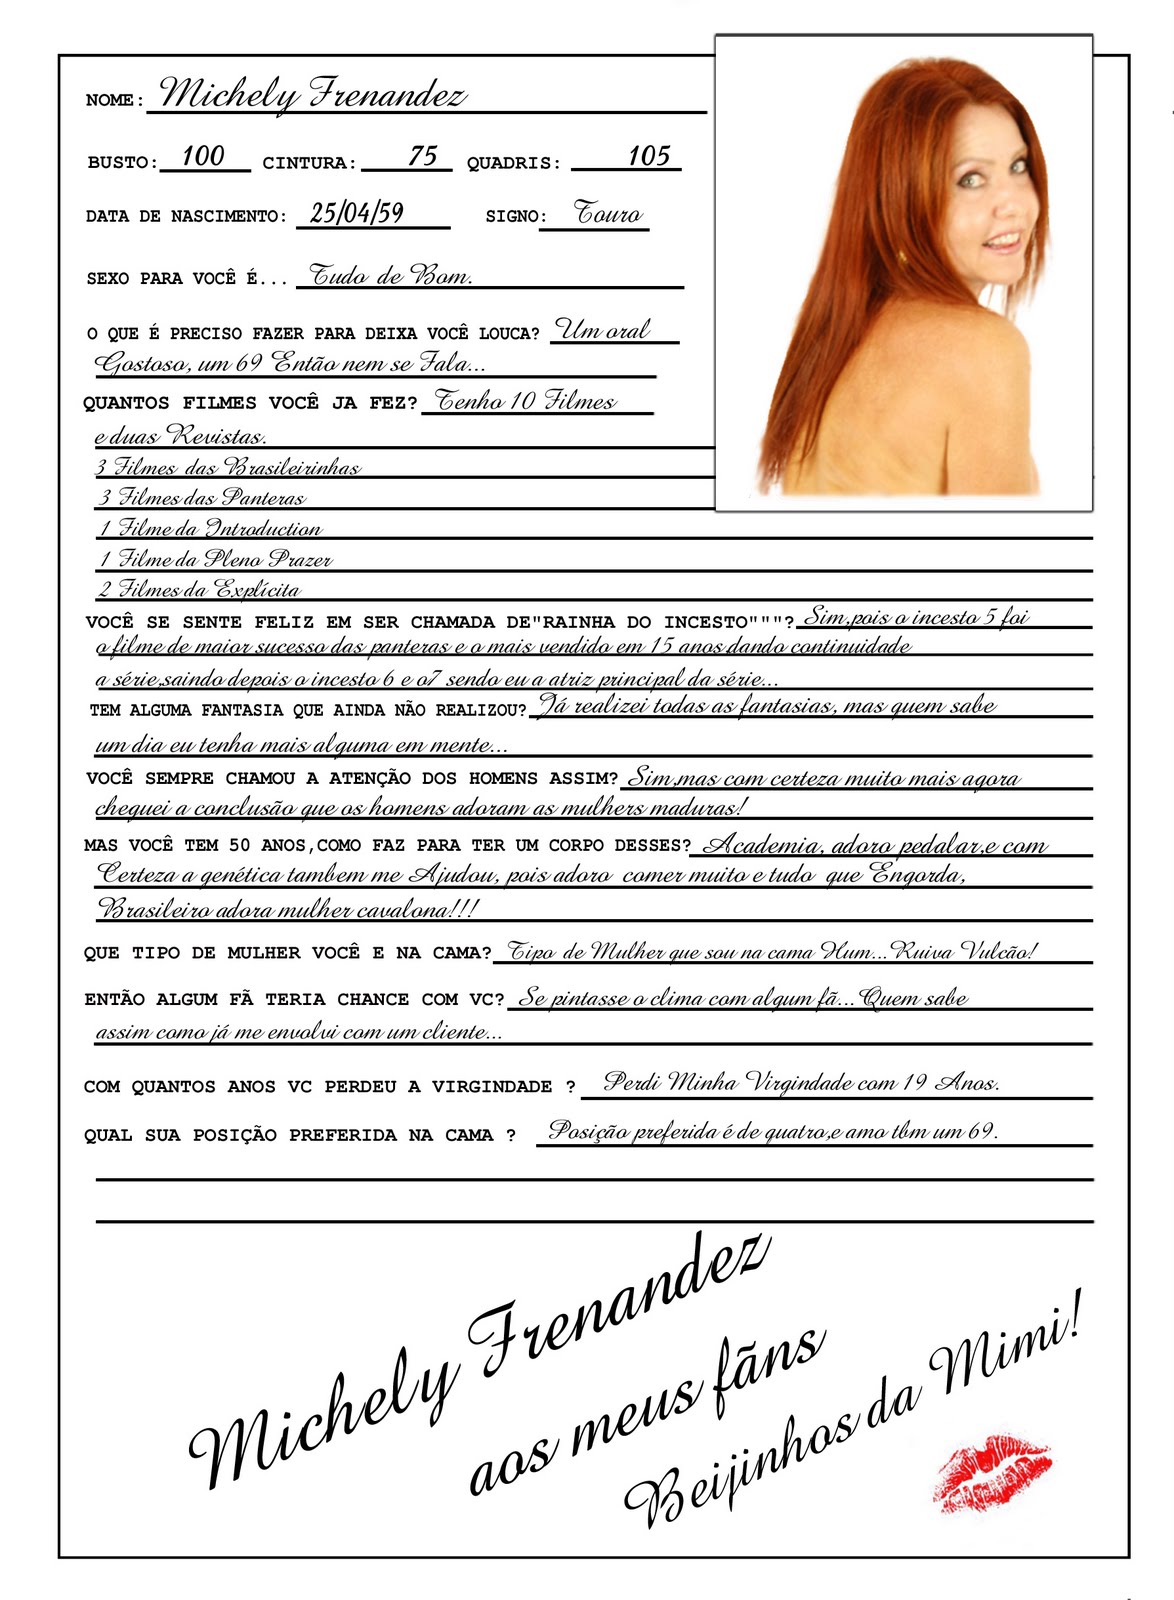 NOME: Michely Frenandez
BUSTO: 100 CINTURA: 75 QUADRIS: 105
DATA DE NASCIMENTO: 25/04/59 SIGNO: Touro
SEXO PARA VOCÊ É... Tudo de Bom.
O QUE É PRECISO FAZER PARA DEIXA VOCÊ LOUCA? Um oral
Gostoso, um 69 Então nem se Fala...
QUANTOS FILMES VOCÊ JA FEZ? Tenho 10 Filmes
e duas Revistas.
3 Filmes das Brasileirinhas
3 Filmes das Panteras
1 Filme da Introduction
1 Filme da Pleno Prazer
2 Filmes da Explícita
VOCÊ SE SENTE FELIZ EM SER CHAMADA DE"RAINHA DO INCESTO"""? Sim,pois o incesto 5 foi
o filme de maior sucesso das panteras e o mais vendido em 15 anos.dando continuidade
a série,saindo depois o incesto 6 e o7 sendo eu a atriz principal da série...
TEM ALGUMA FANTASIA QUE AINDA NÃO REALIZOU? Já realizei todas as fantasias, mas quem sabe
um dia eu tenha mais alguma em mente...
VOCÊ SEMPRE CHAMOU A ATENÇÃO DOS HOMENS ASSIM? Sim,mas com certeza muito mais agora
cheguei a conclusão que os homens adoram as mulhers maduras!
MAS VOCÊ TEM 50 ANOS,COMO FAZ PARA TER UM CORPO DESSES? Academia, adoro pedalar,e com
Certeza a genética tambem me Ajudou, pois adoro comer muito e tudo que Engorda,
Brasileiro adora mulher cavalona!!!
QUE TIPO DE MULHER VOCÊ E NA CAMA? Tipo de Mulher que sou na cama Hum...Ruiva Vulcão!
ENTÃO ALGUM FÃ TERIA CHANCE COM VC? Se pintasse o clima com algum fã...Quem sabe
assim como já me envolvi com um cliente...
COM QUANTOS ANOS VC PERDEU A VIRGINDADE ? Perdi Minha Virgindade com 19 Anos.
QUAL SUA POSIÇÃO PREFERIDA NA CAMA ? Posição preferida é de quatro,e amo tbm um 69.
Michely Frenandez
aos meus fãns
Beijinhos da Mimi!